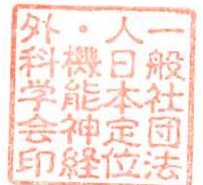 一般社団法
人日本定位
・機能神経
外科学会印